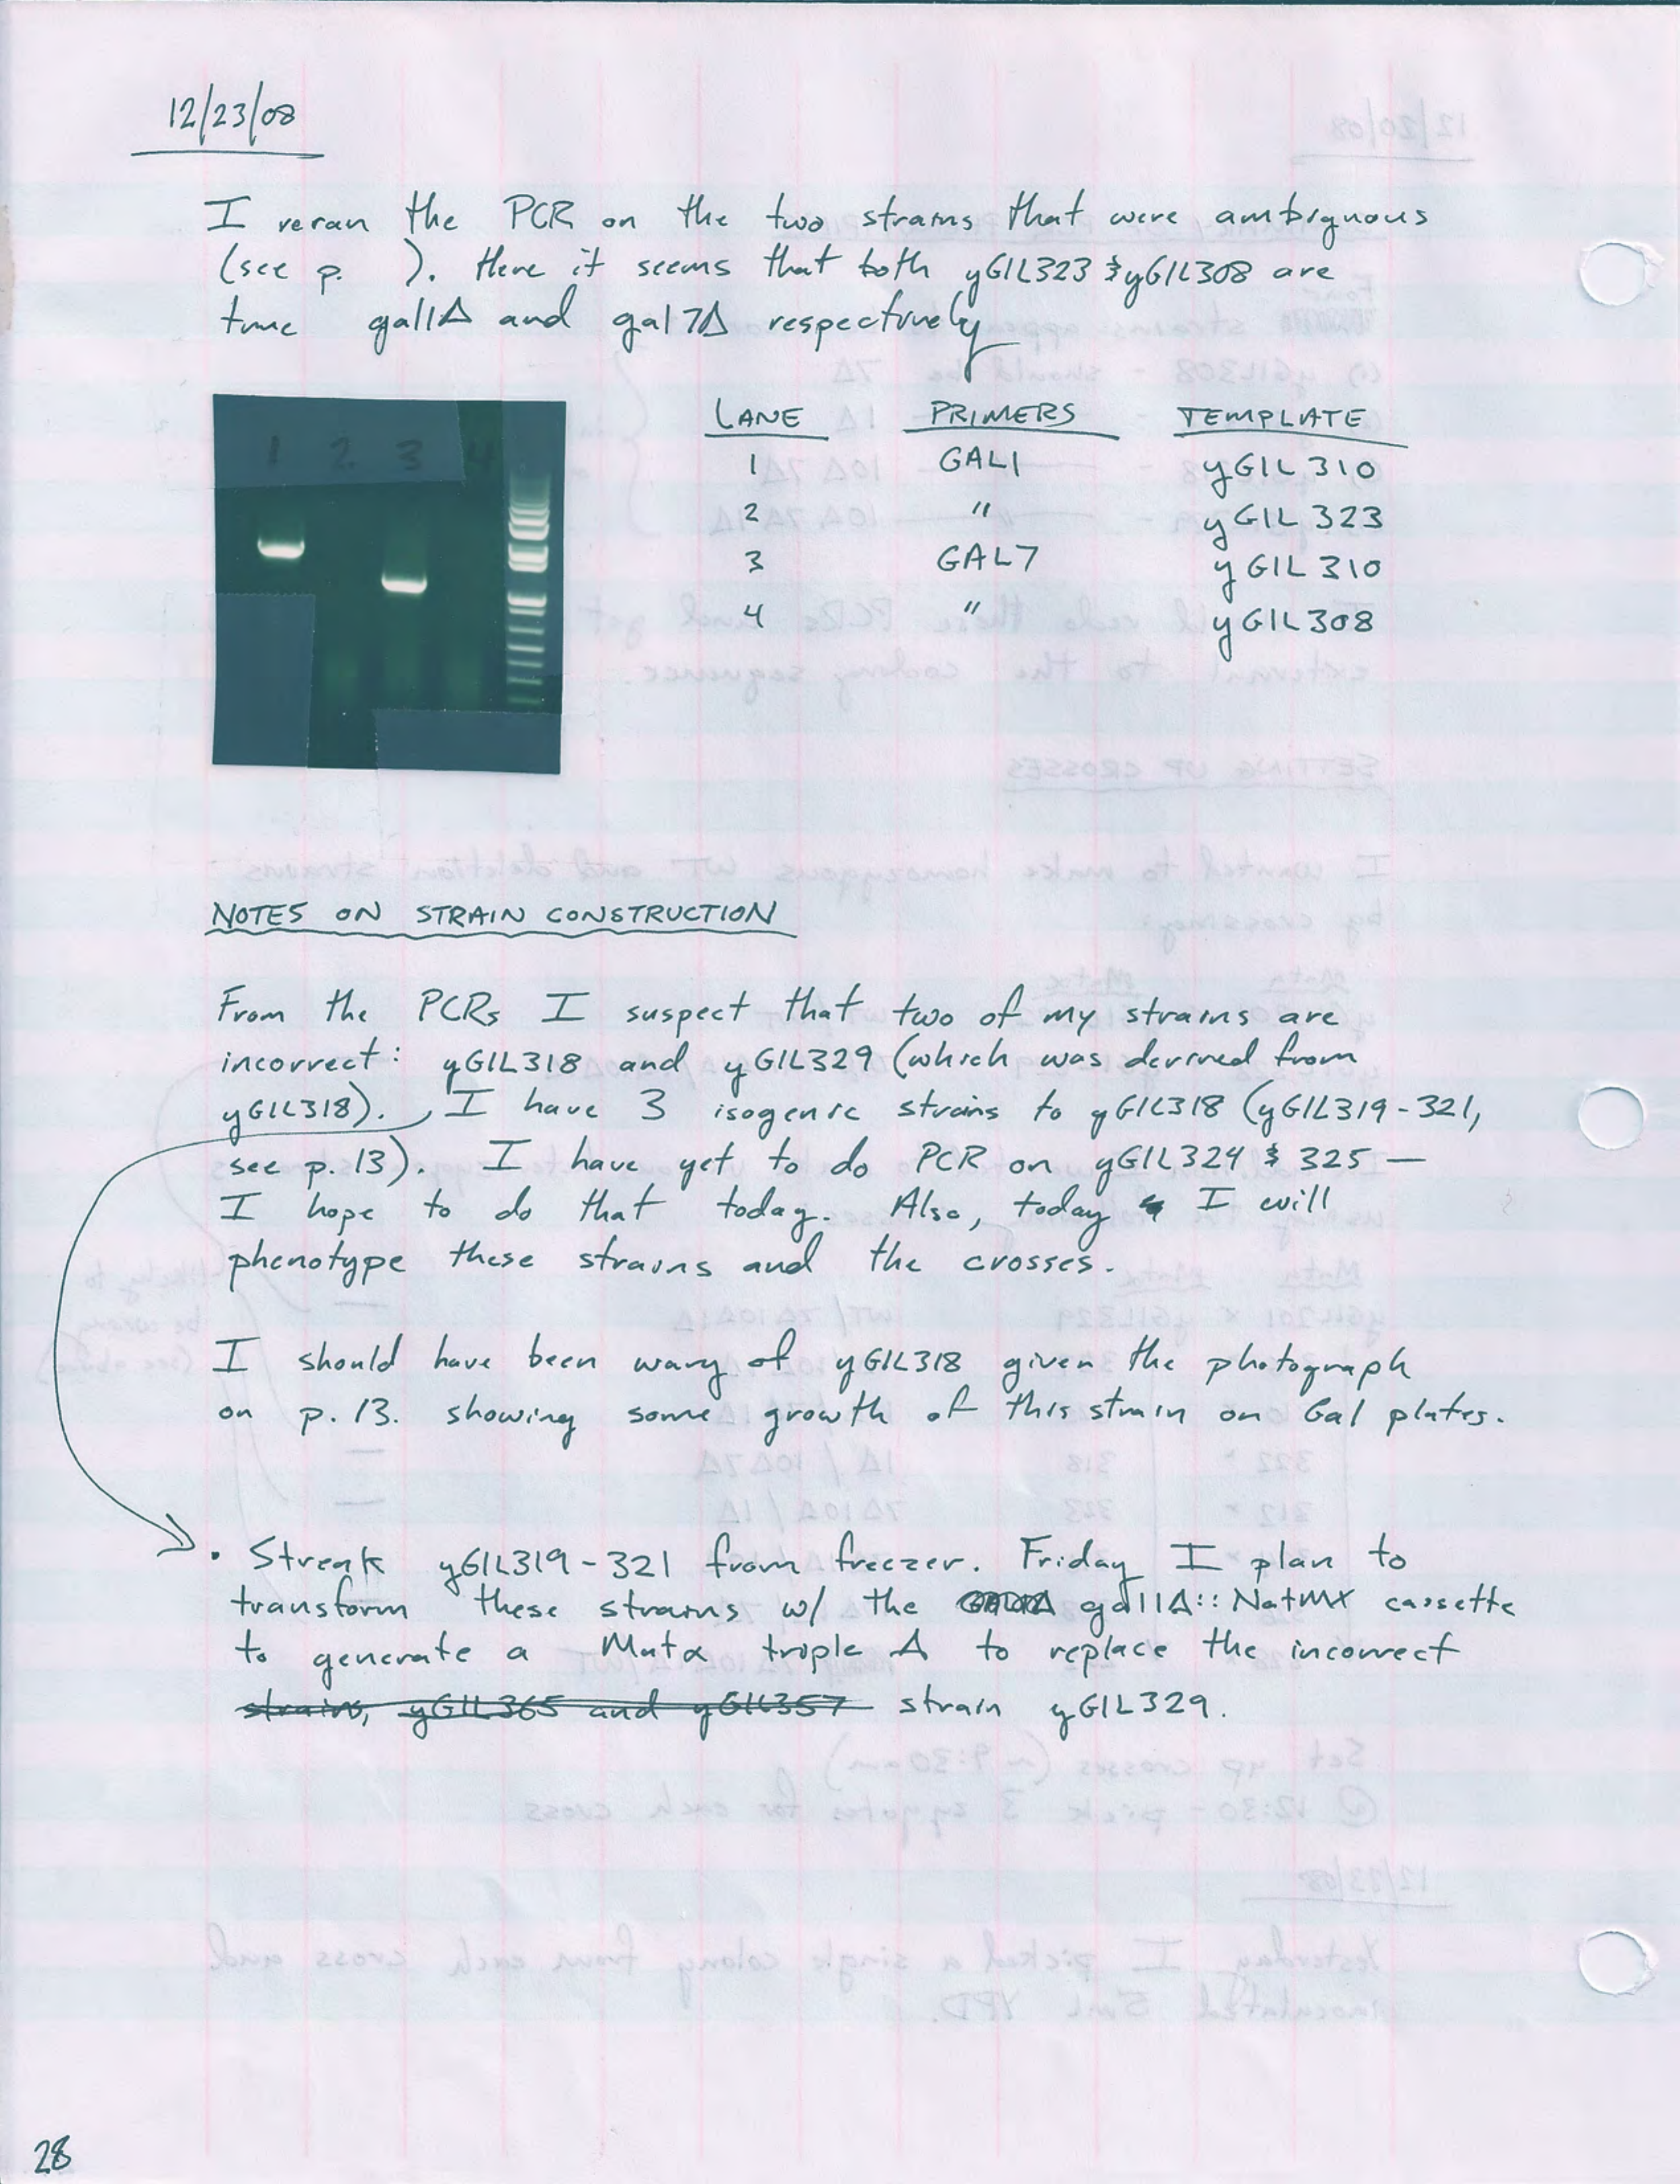 12/23/08
I reran the PCR on the two strains that were ambiguous
(see p.    ). Here it seems that both yGIL323 & yGIL308 are
true gal1Δ and gal7Δ respectively
1 2 3 4
LANE PRIMERS TEMPLATE
1 GAL1 yGIL310
2 " yGIL323
3 GAL7 yGIL310
4 " yGIL308
NOTES ON STRAIN CONSTRUCTION
From the PCRs I suspect that two of my strains are
incorrect: yGIL318 and yGIL329 (which was derived from
yGIL318). I have 3 isogenic strains to yGIL318 (yGIL319-321,
see p. 13). I have yet to do PCR on yGIL324 & 325 —
I hope to do that today. Also, today I will
phenotype these strains and the crosses.
I should have been wary of yGIL318 given the photograph
on p. 13. showing some growth of this strain on Gal plates.
• Streak yGIL319-321 from freezer. Friday I plan to
transform these strains w/ the gal1Δ::NatMX cassette
to generate a Matα triple Δ to replace the incorrect
strains, yGIL365 and yGIL357 strain yGIL329.
28